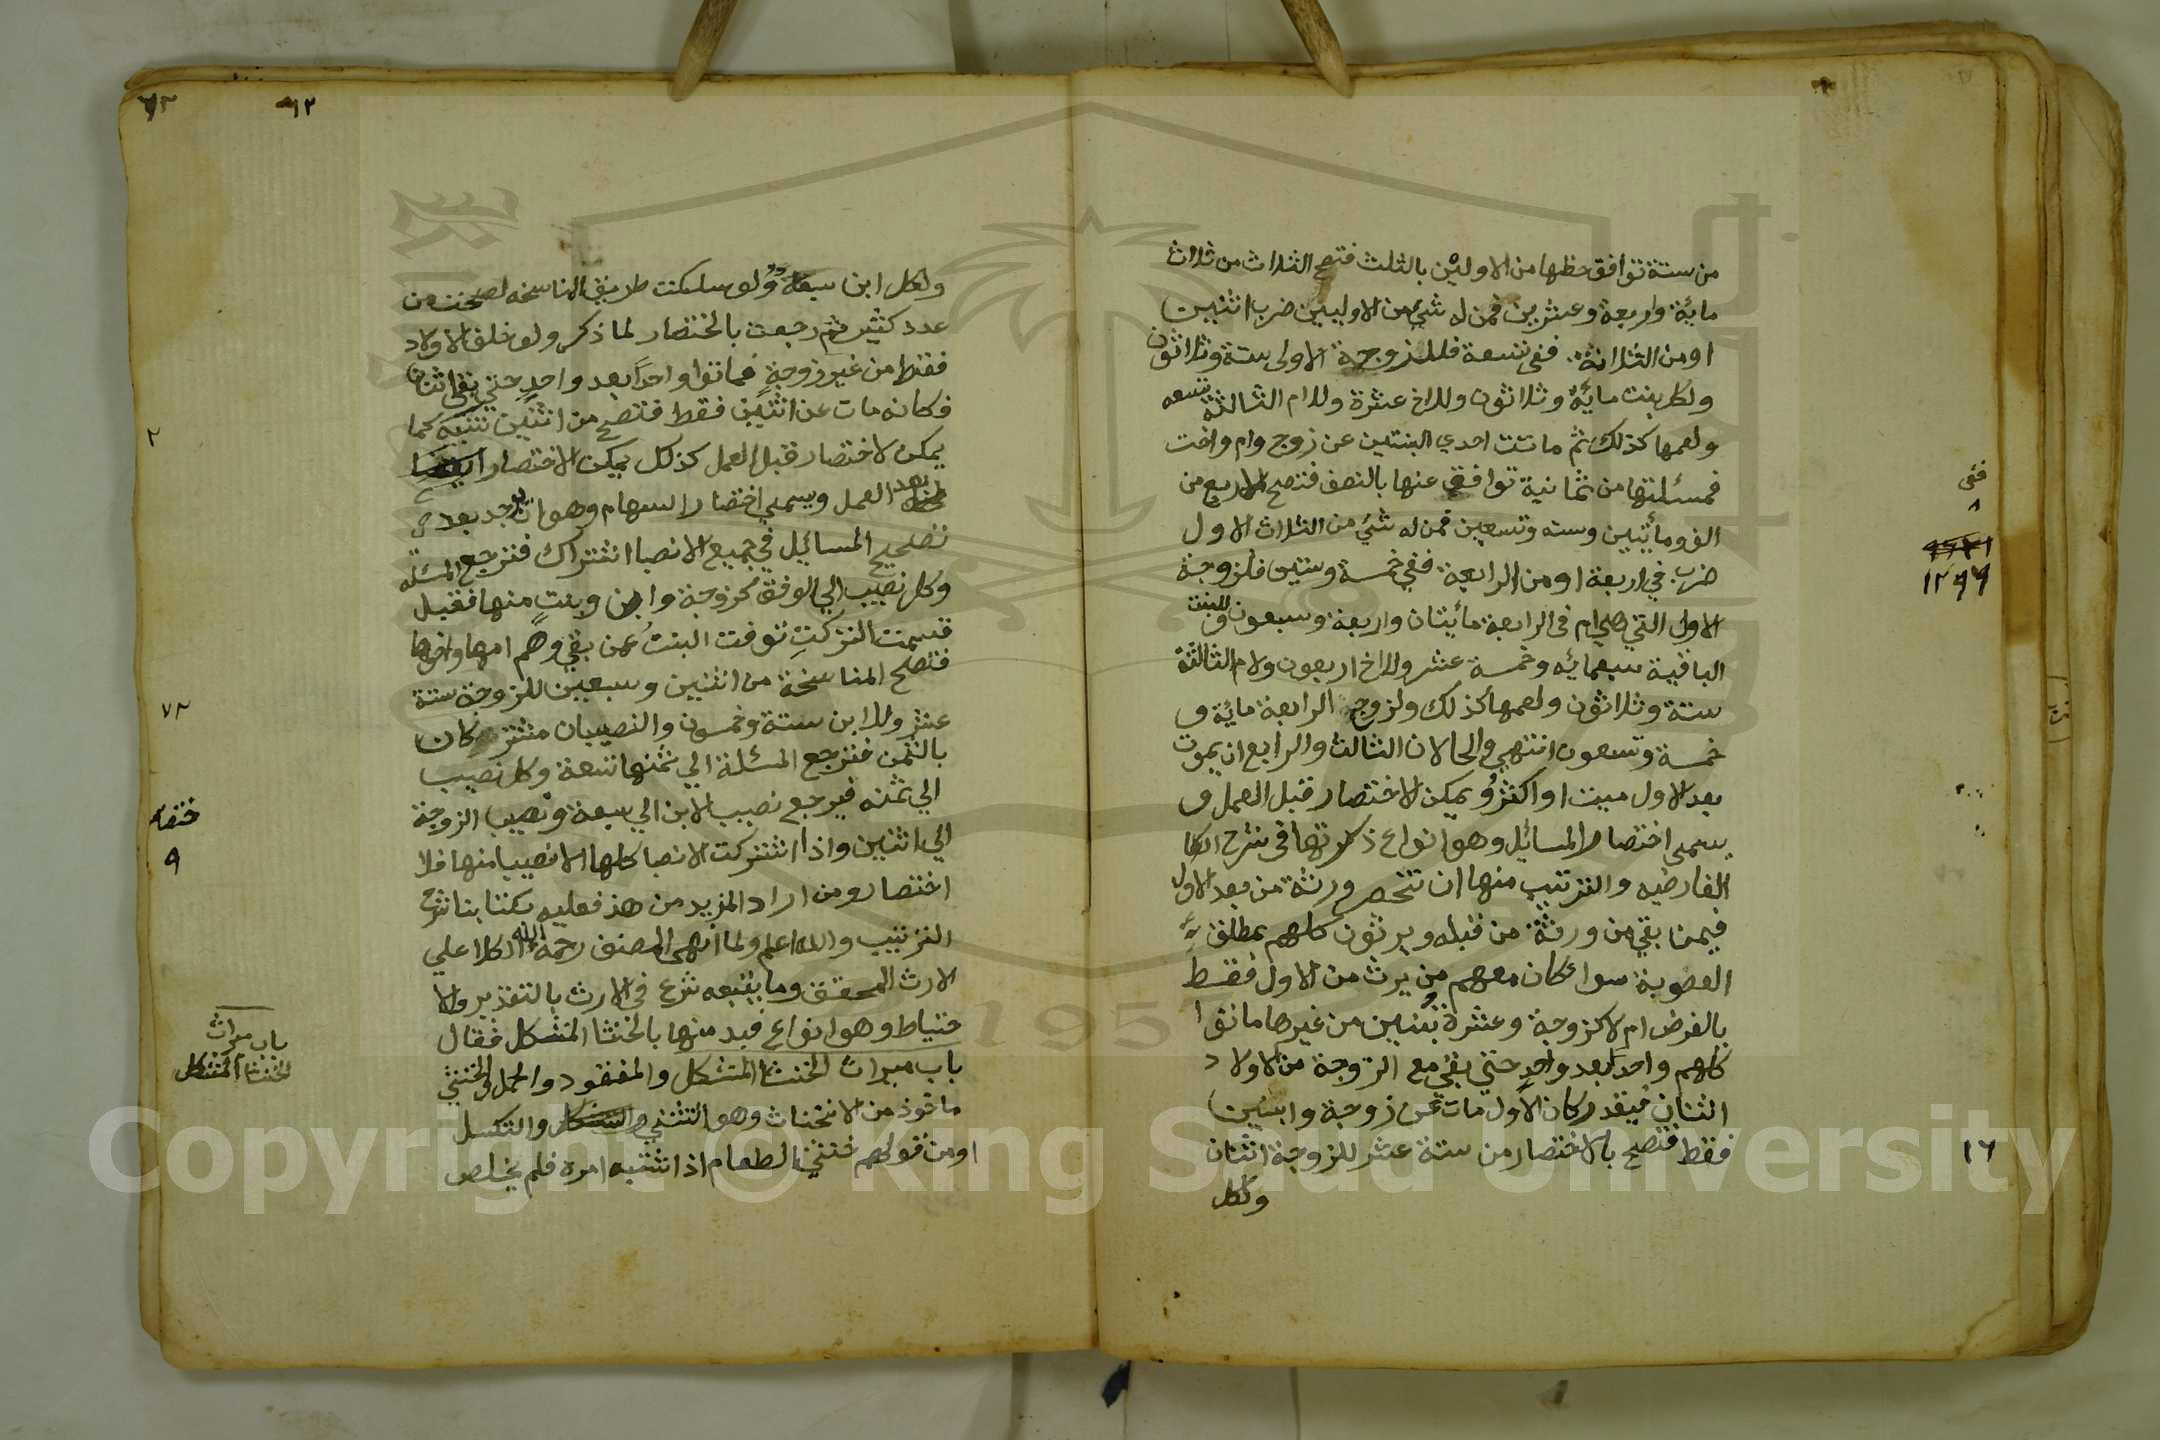 من ستة توافق حظها من الاوليْن بالثلث فتصح الثلاث من ثلاث
ماية واربعة وعشرين فمن له شئ من الاوليين ضرب اثنين
او من الثلاثة ففي تسعة فللزوجة الاولى ستة وثلاثون
ولكل بنت مائة وثلاثون وللاخ عشرة وللام الثالثة تسعه
ولعمها كذلك ثم ماتت احدي البنتين عن زوج وام واخت
فمسئلتها من ثمانية توافق عنها بالنصف فتصح الاربع من
الف ومأتيين وسته وتسعين فمن له شئ من الثلاث الاول
ضرب في اربعة او من الرابعة ففي خمسة وستين فلزوجة
الاول التي هي ام في الرابعة مأيتان واربعة وسبعون وللبنت
الباقية سبعمايه وخمسة عشر وللاخ اربعون ولام الثالثة
ستة وثلاثون ولعمها كذلك ولزوج الرابعة ماية و
خمسة وتسعون انتهي والحالان الثالث والرابع ان يموت
بعد الاول ميت او اكثر ويمكن الاختصار قبل العمل و
يسمي اختصار المسائيل وهو انواع ذكرتها في شرح الكا
الفارضيه والترتيب منها ان تنحصر ورثة من بعد الاول
فيمن بقي من ورثة من قبله ويرثون كلهم بمطلق
العصوبة سوا كان معهم من يرث من الاول فقط
بالفرض ام لا كزوجة وعشرة بنين من غيرها ماتوا
كلهم واحدا بعد واحد حتي بقي مع الزوجة من الاولاد
اثنان فيقدر كان الاول مات عن زوجة وابنين
فقط فتصح بالاختصار من ستة عشر للزوجة اثنان
ولكل
فقى
٨
١٢٩٦
١٦
٦٢
ولكل ابن سبعة ولو سلكت طريق الناسخه لصحت من
عدد كثير ثم رجعت بالاختصار لما ذكر ولو خلف الاولاد
فقط من غير زوجةٍ فماتوا واحدًا بعد واحدٍ حتي بقي اثنان
فكانه مات عن اثنين فقط فتصح من اثنين تنبيه كما
يمكن لاختصار قبل العمل كذلك يمكن الاختصار ايضا
بعد العمل ويسمي اختصار السهام وهو ان يوجد بعد
تصحيح المسائيل في جميع الانصبا اشتراك فترجع المسئله
وكل نصيب الي الوفق كزوجة وابن وبنتٍ منها فقبل
قسمت التركتِ توفت البنتُ عمن بقي وهم امها واخوها
فتصح المناسخة من اثنين وسبعين للزوجة ستة
عشر وللابن ستة وخمسون والنصيبان مشتركان
بالثمن فترجع المسئلة الي ثمنها تسعة وكل نصيب
الي ثمنه فيرجع نصيب الابن الي سبعة ونصيب الزوجة
الي اثنين واذا اشتركت الانصبا كلها الا نصيبا منها فلا
اختصار ومن اراد المزيد من هذ فعليه بكتابنا شرح
الترتيب والله اعلم ولما انهى المصنف رحمة الله الكلا علي
الارث المحقق وما يتبعه شرع في الارث بالتقدير والا
حتياط وهو انواع فبد منها بالخنثا المشكل فقال
باب ميراث الخنثا المشكل والمفقود والحمل والخنثي
ماخوذ من الانخناث وهو التثني والتكسل
او من قولهم خنثي الطعام اذا اشتبه امره فلم يخلص
٢
٧٢
٩
باب ميراث
الخنثا المشكل
Copyright © King Saud University
195